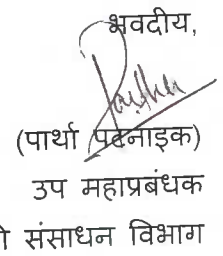 भवदीय,
(पार्था पटनाइक)
उप महाप्रबंधक
संसाधन विभाग